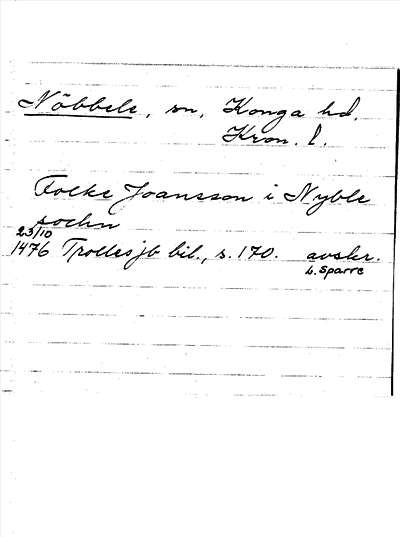 Nöbbele, sn, Konga hd.
Kron. l.
Folke Joansson i Nyble
sochn
23/10
1476 Trolles jb bil., s. 170. avskr.
L. Sparre